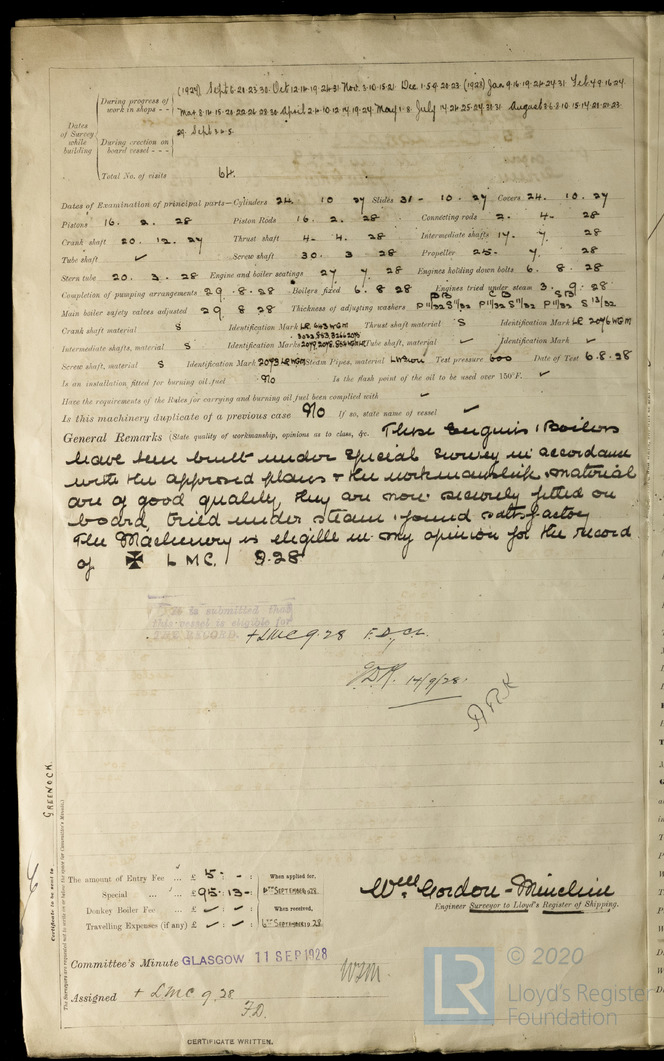 (1927) Sept 6.21.23.30. Oct 12.14.19.24.31 Nov. 3.10.15.21 Dec 1.5.9.20.23 (1928) Jan 9.16.19.24.31 Feb 4.9.16.24
During progress of work in shops - -
Mar 8.14.15.20.22.26.28.30. April 2.4.10.12.14.19.24. May 1.8. July 14.24.25.27.30.31 August 3.6.8.10.15.17.20.21.23
Dates of Survey while building
29. Sept 3.4.5.
During erection on board vessel - - -
Total No. of visits 64.
Dates of Examination of principal parts—Cylinders 24 10 27 Slides 31 - 10. 27 Covers 24. 10. 27
Pistons 16. 2. 28 Piston Rods 16. 2. 28 Connecting rods 2. 4- 28
Crank shaft 20. 12. 27 Thrust shaft 4- 4. 28 Intermediate shafts 17. 7. 28
Tube shaft ✓ Screw shaft 30. 3 28 Propeller 25. 7. 28
Stern tube 20. 3. 28 Engine and boiler seatings 27 7. 28 Engines holding down bolts 6. 8. 28
Completion of pumping arrangements 29. 8. 28 Boilers fixed 6. 8 28 Engines tried under steam 3. 9. 28
PB CB SB
Main boiler safety valves adjusted 29 8 28 Thickness of adjusting washers P 11/32 S 11/32 P 11/32 S 11/32 P 11/32 S 13/32
Crank shaft material S Identification Mark LR WGM Thrust shaft material S Identification Mark LR 2046 WGM
Intermediate shafts, material S Identification Marks Tube shaft, material ✓ Identification Mark ✓
Screw shaft, material S Identification Mark 2093 LR WGM Steam Pipes, material Test pressure 600 Date of Test 6.8.28
Is an installation fitted for burning oil fuel No Is the flash point of the oil to be used over 150°F. ✓
Have the requirements of the Rules for carrying and burning oil fuel been complied with ✓
Is this machinery duplicate of a previous case No If so, state name of vessel ✓
General Remarks (State quality of workmanship, opinions as to class, &c. These Engines & Boilers
have been built under Special Survey in accordance
with the approved plans & the workmanship & material
are of good quality, they are now securely fitted on
board, tried under steam & found satisfactory
The Machinery is eligible in my opinion for the record
of ✠ LMC. 9.28
It is submitted that
this vessel is eligible for
THE RECORD. + LMC 9.28 F.D, CL.
14/9/28.
ARK
GREENOCK
Certificate to be sent to
The amount of Entry Fee ... £ 5 : - : When applied for,
Special ... ... £ 95 : 13 : - 6TH SEPTEMBER 1928
Donkey Boiler Fee ... £ ✓ : ✓ : When received,
Travelling Expenses (if any) £ ✓ : ✓ : 6TH SEPTEMBER 19 28
Wm Gordon-Mincline
Engineer Surveyor to Lloyd's Register of Shipping.
Committee's Minute GLASGOW 11 SEP 1928
Assigned + LMC 9.28
F.D.
CERTIFICATE WRITTEN.
LR
© 2020
Lloyd's Register
Foundation